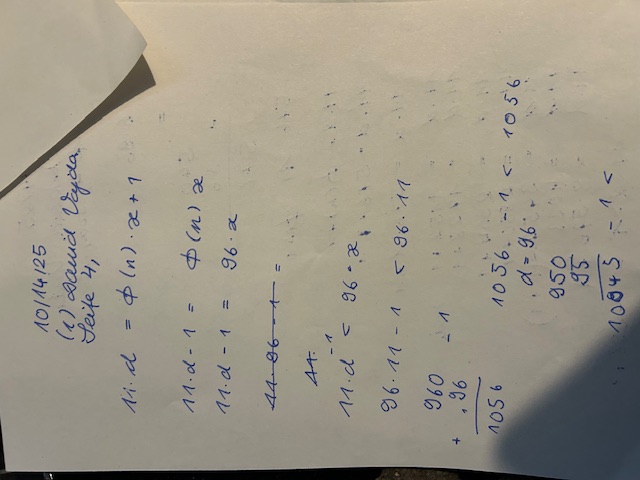 10/14/25
(1) David Vajda
Seite 4,
11·d = Φ(n)·x+1
11·d-1 = Φ(n) x
11·d-1 = 96·x
11·96-1 =
11·
11·d-1 < 96·x
96·11-1 < 96·11
960 -1
+ 96
1056
1056-1 < 1056
d=96
950
95
1045 -1 <